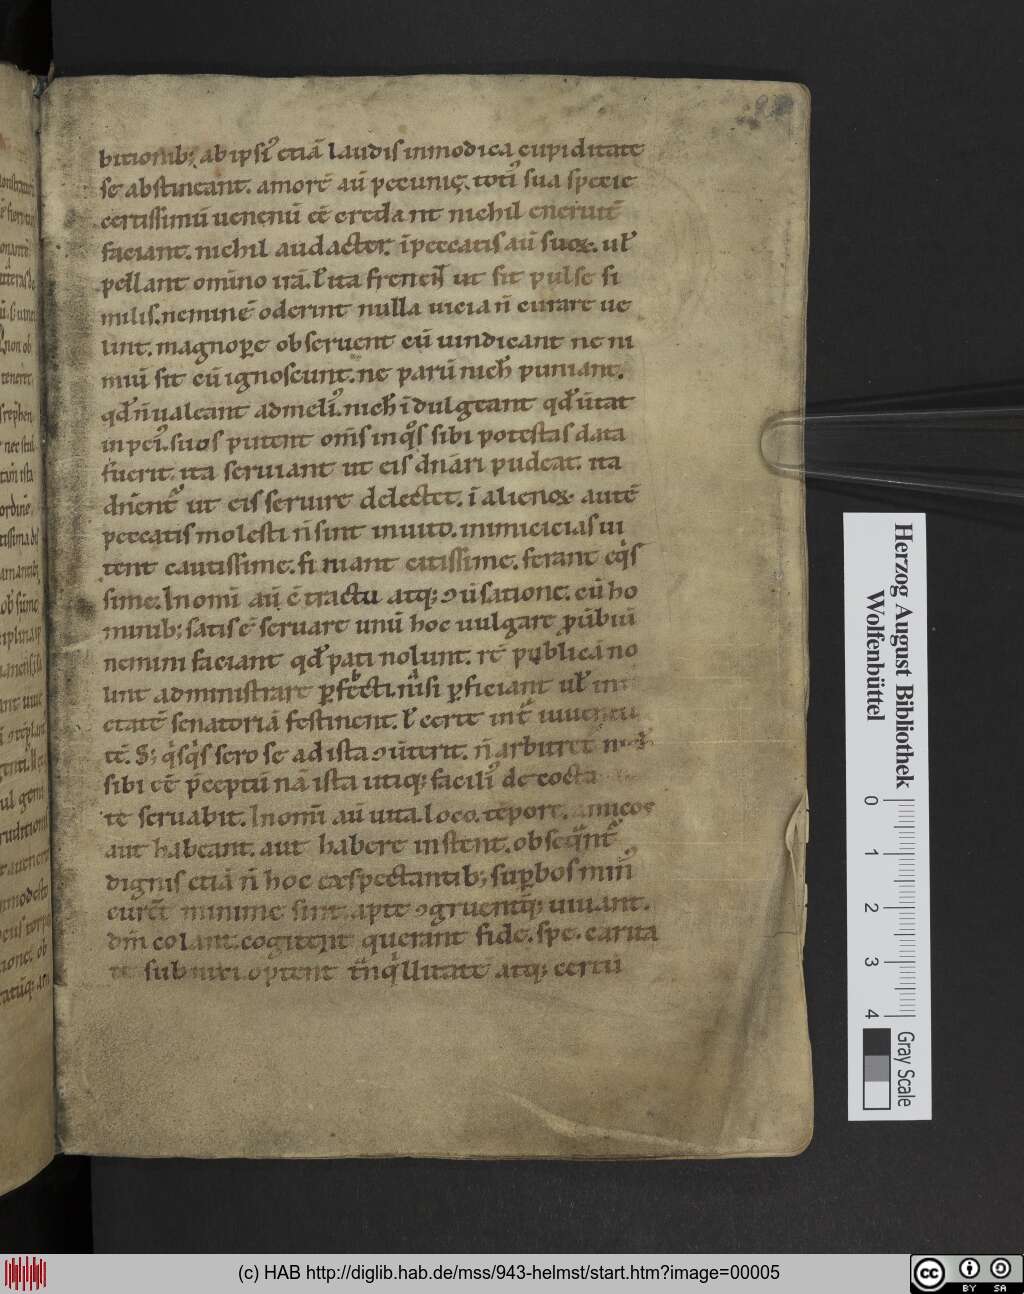 bitionib; ab ipsi᷒ etiā laudis inmodica cupiditate
se abstineant. amorē aū pecunię. toti᷒ sua specie
certissimū uenenū eē creda nt nichil eneruitē
faciant. nichil audacter. ī peccatis aū suoꝝ. ul̄
pellant omīno irā. ł ita frenent ut sit pulse si
milis. neminē oderint nulla uicia n̄ curare ue
lint. magnoꝑe obseruent cū uindicant ne ni
miū sit cū ignoscunt. ne parū nich̄ puniant.
qđ n̄ ualeant admeli᷒. nich̄ īdulgeant qđ ūtat
in pei᷒. suos putent om̄s in qͦs sibi potestas data
fuerit. ita seruiant ut eis dn̄ari pudeat. ita
dn̄ent᷑ ut eis seruire delectet. ī alienoꝝ autē
peccatis molesti n̄ sint inuito. inimicicias ui
tent cautissime. fi niant citissime. ferant eqͥs
sime. In omī aū ꝯtractu atq; ꝯūsatione. cū ho
minib; satis ē seruare unū hoc uulgare ꝓūbiū
nemini faciant qđ pati nolunt. rē publicā no
lint administrare ꝑfecti. nͥsi ꝑficiant ul̄ int
etatē senatoriā festinent. ł certe int̄ iuuentu
tē. S; qͥsqͥs sero se ad ista ꝯūterit. n̄ arbitret nich̄
sibi eē p̄ceptū nā ista utiq; facili᷒ decocta
te seruabit. In omī aū uita. loco. tēpore. amicos
aut habeant. aut habere instent. obseqͣnt᷑
dignis etiā n̄ hoc exspectantib; suꝑbos min᷒
curēt minime sint. apte ꝯgruentq; uiuant.
dm̄ colant. cogitent querant fide. spe. carita
te subnixi optent tn̄qͥllitate atq; certū
Herzog August Bibliothek
Wolfenbüttel
0 1 2 3 4
Gray Scale
(c) HAB http://diglib.hab.de/mss/943-helmst/start.htm?image=00005
cc BY SA